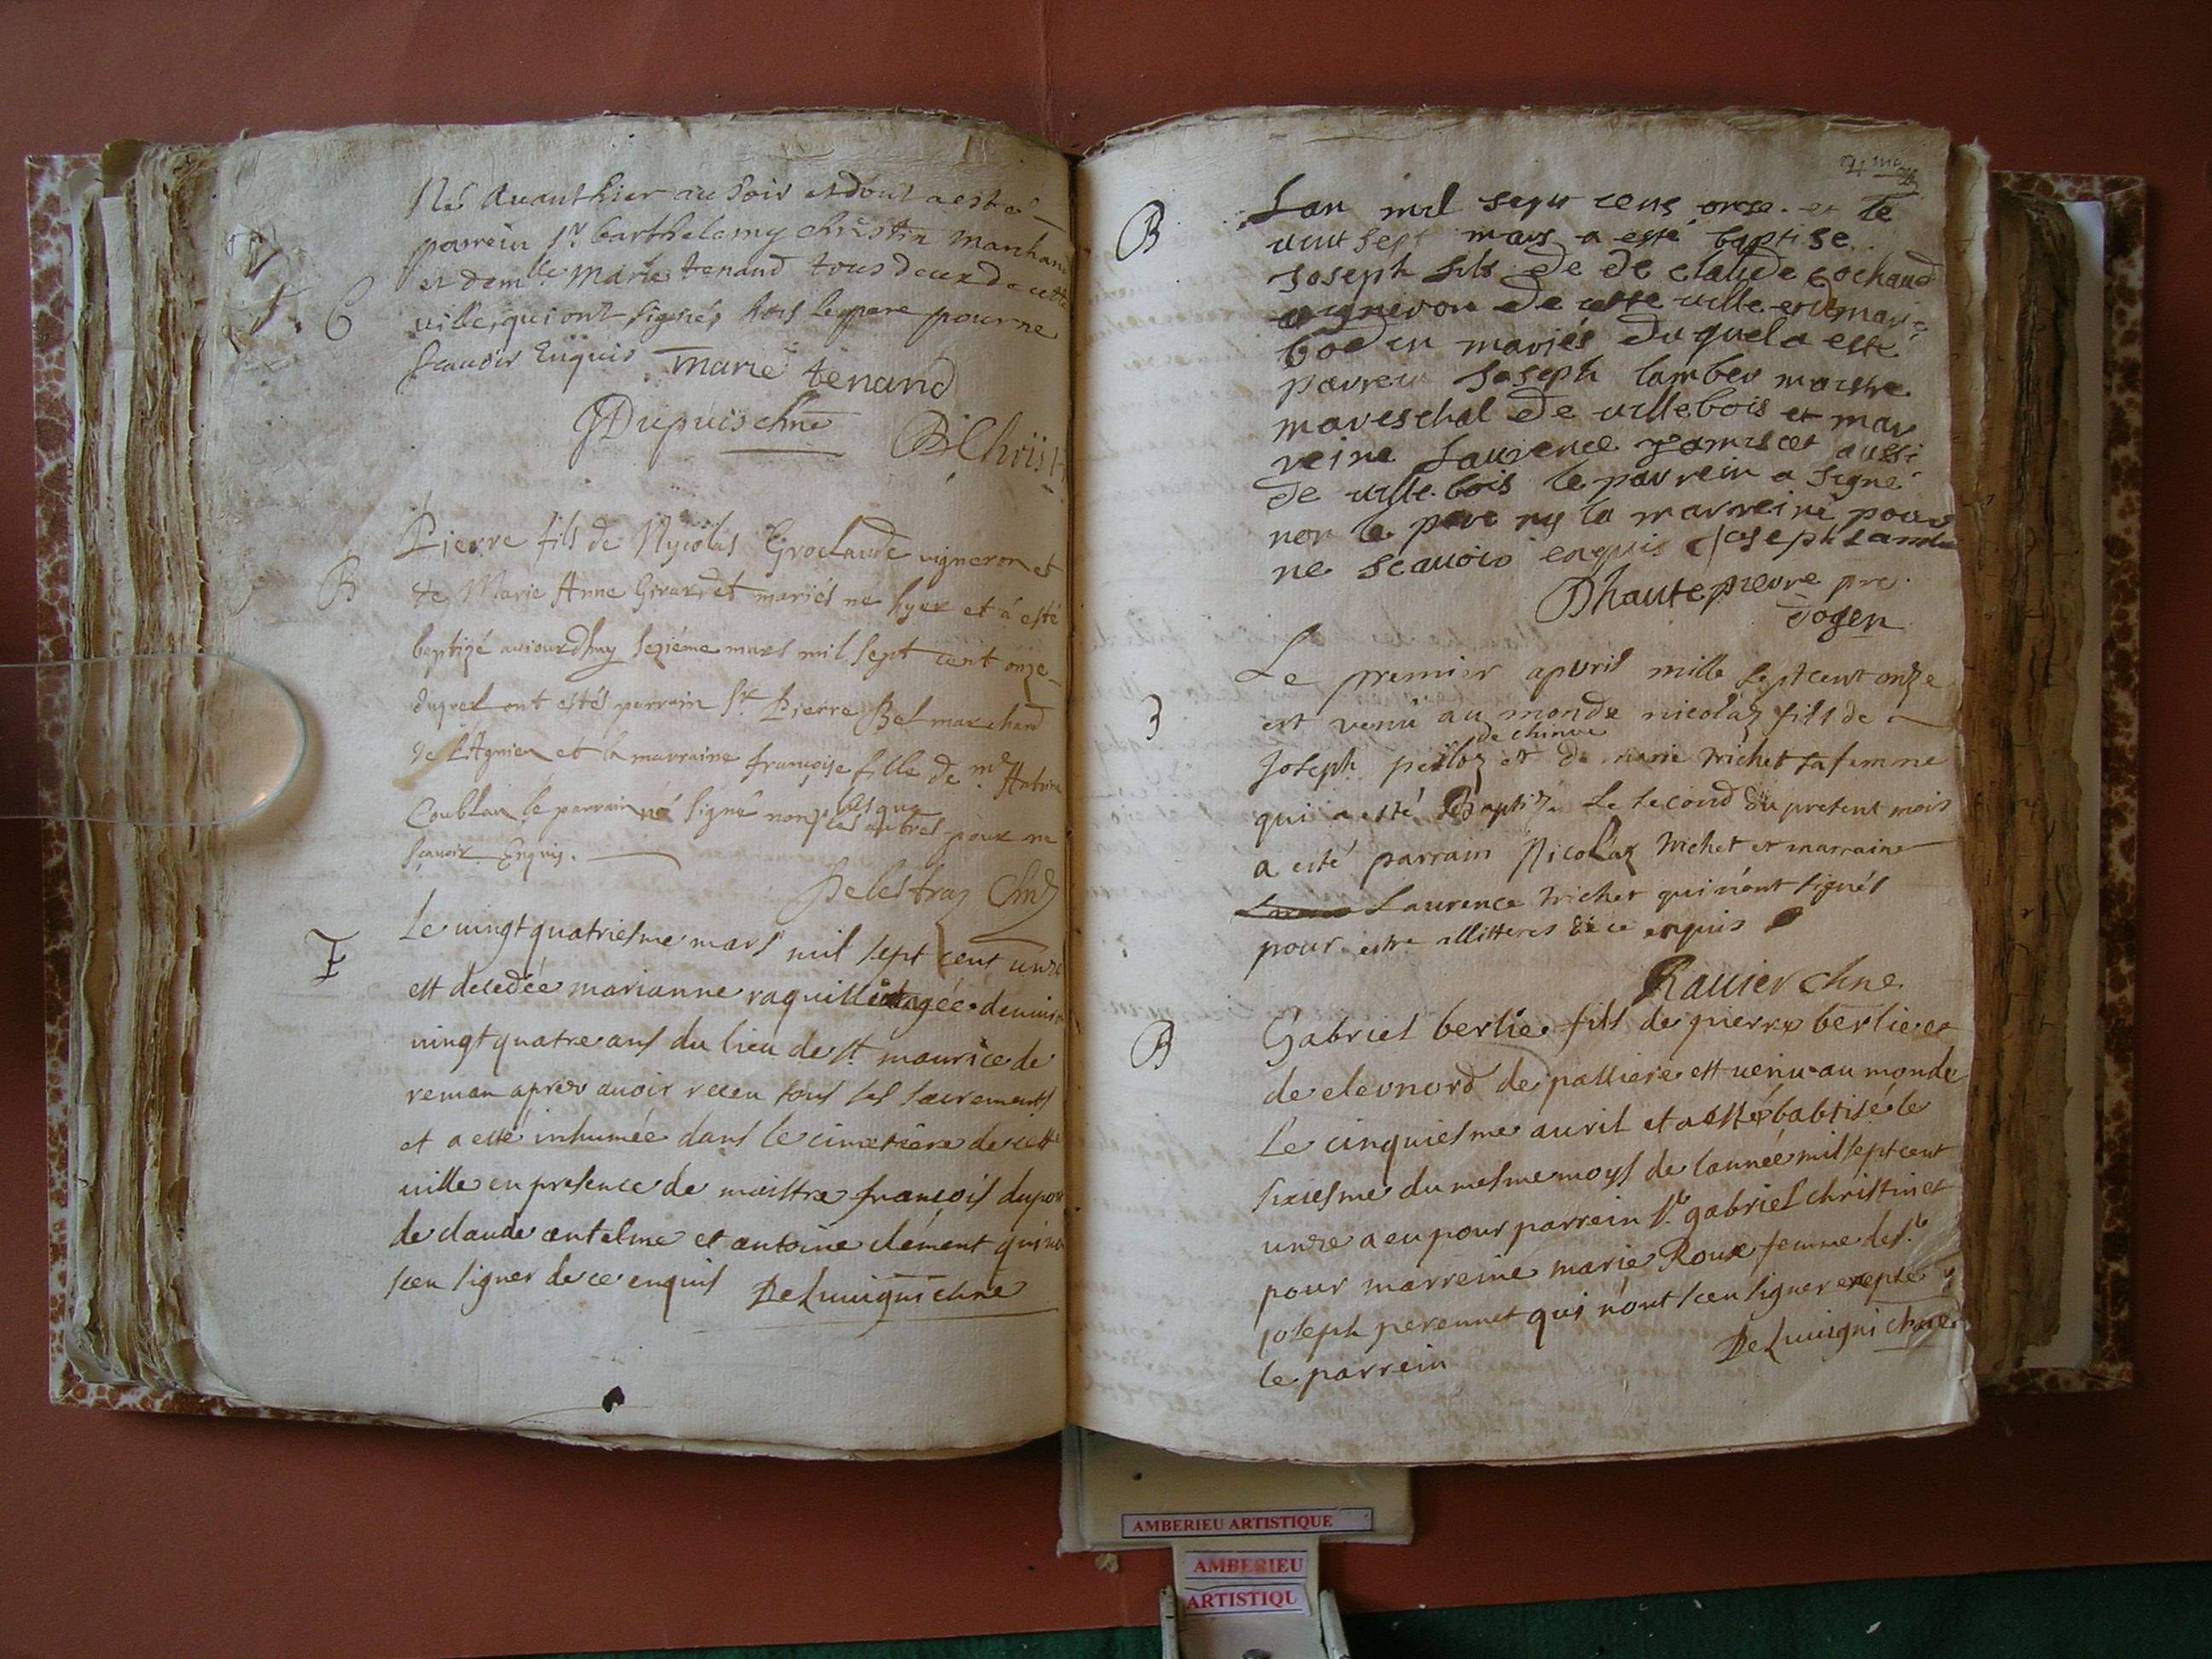 Né Auanthier au Soir et dont a esté
parrein Sr. barthelemy christin marchand
et demlle. Marie tenand tous deux de cette
ville, qui ont signés, hors le pere pour ne
scauoir Enquis
marie tenand
JDupuis chne
BChrist
B
Pierre fils de Nycolas Groclaude vigneron et
de Marie Anne Girardet mariés né hyer et á esté
baptizé auiourdhuy seziéme mars mil sept cent onze
duquel ont estés parrain Sr. Pierre Bel marchand
de L'Agnieu et la marraine françoise fille de mr. Antoine
Coublan le parrain n'á signé non plus que
les autres pour ne
scauoir Enquis.
Delestraz Chne
F
Le uingt quatriesme mars mil sept cent unze
est decedée marianne raquillet agée denuiron
uingt quatre ans du lieu de st. maurice de
reman apres auoir receu tous les sacrements
et a esté inhumée dans le cimetiere de cette
uille en presence de maistre françois dupon
de claude antelme et antoine clément qui n'on
sceu signer de ce enquis Deluuigni chne
B
Lan mil sept cens onze et le
vint sept mars a esté baptise
Joseph fils de de claude cochaud
uigneron de cette uille et de mari
bodin mariés duquel a esté
parrein Joseph lamber maistre
mareschal de uillebois et mar
reine Laurence jamis et aussi
de uille bois le parrein a signé
non le pere ny la marreine pour
ne scauoir enquis Joseph Lambe
Dhautepierre pre.
Doyen
B
Le premier apuril mille sept cent onze
est venu au monde nicolaz fils de
de chinue
Joseph peilloz et de marie trichet sa femme
qui a esté Baptizé Le second du present mois
a esté parrain Nicolaz trichet et marraine
Laurence trichet qui n'ont signés
pour estre illitteres de ce enquis
Rauier chne
B
Gabriel berlie fils de pierre berlie et
de eleonord de palliere est uenu au monde
Le cinquiesme auril et a esté babtisé le
sixiesme du mesme moys de l'année mil sept cent
unze a eu pour parrein Sr. gabriel christin et
pour marreine marie Roux femme de Sr.
joseph perennet qui n'ont sceu signer exepté
le parrein
Deluuigni chne
AMBERIEU ARTISTIQUE
AMBERIEU
ARTISTIQU